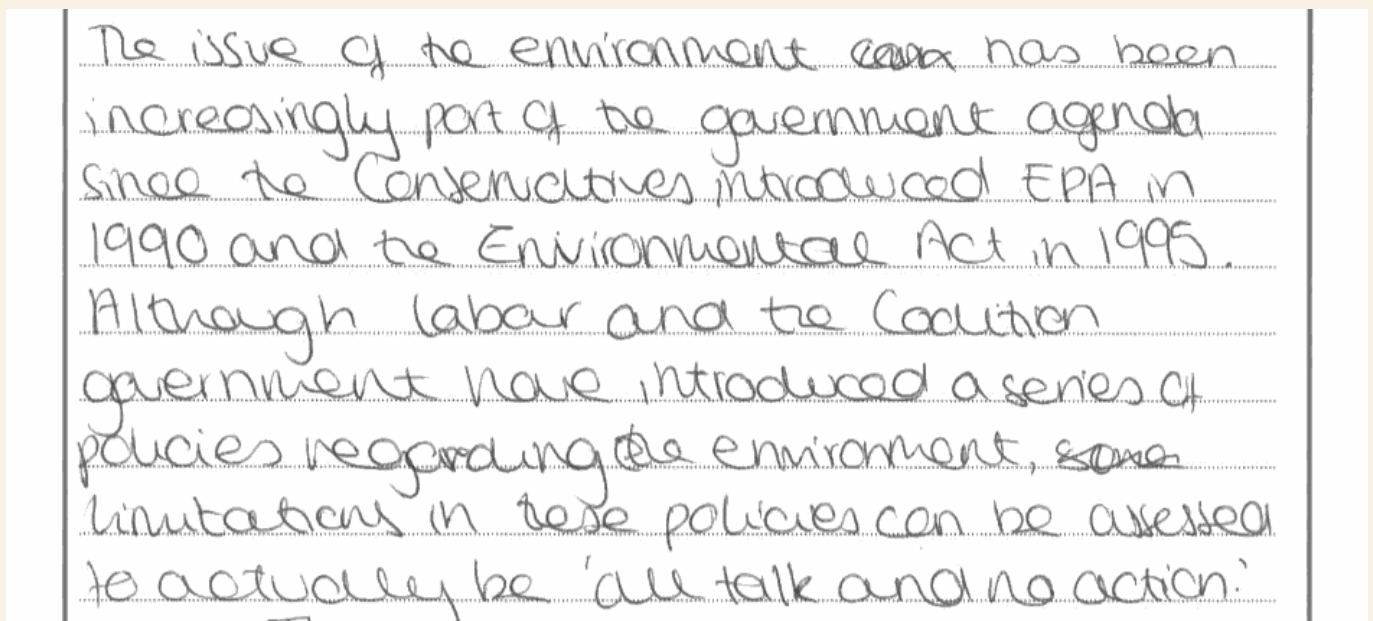 The issue of the environment has been
increasingly part of the government agenda
since the Conservatives introduced EPA in
1990 and the Environmental Act in 1995.
Although labour and the Coalition
government have introduced a series of
policies regarding the environment, some
limitations in these policies can be assessed
to actually be 'all talk and no action.'